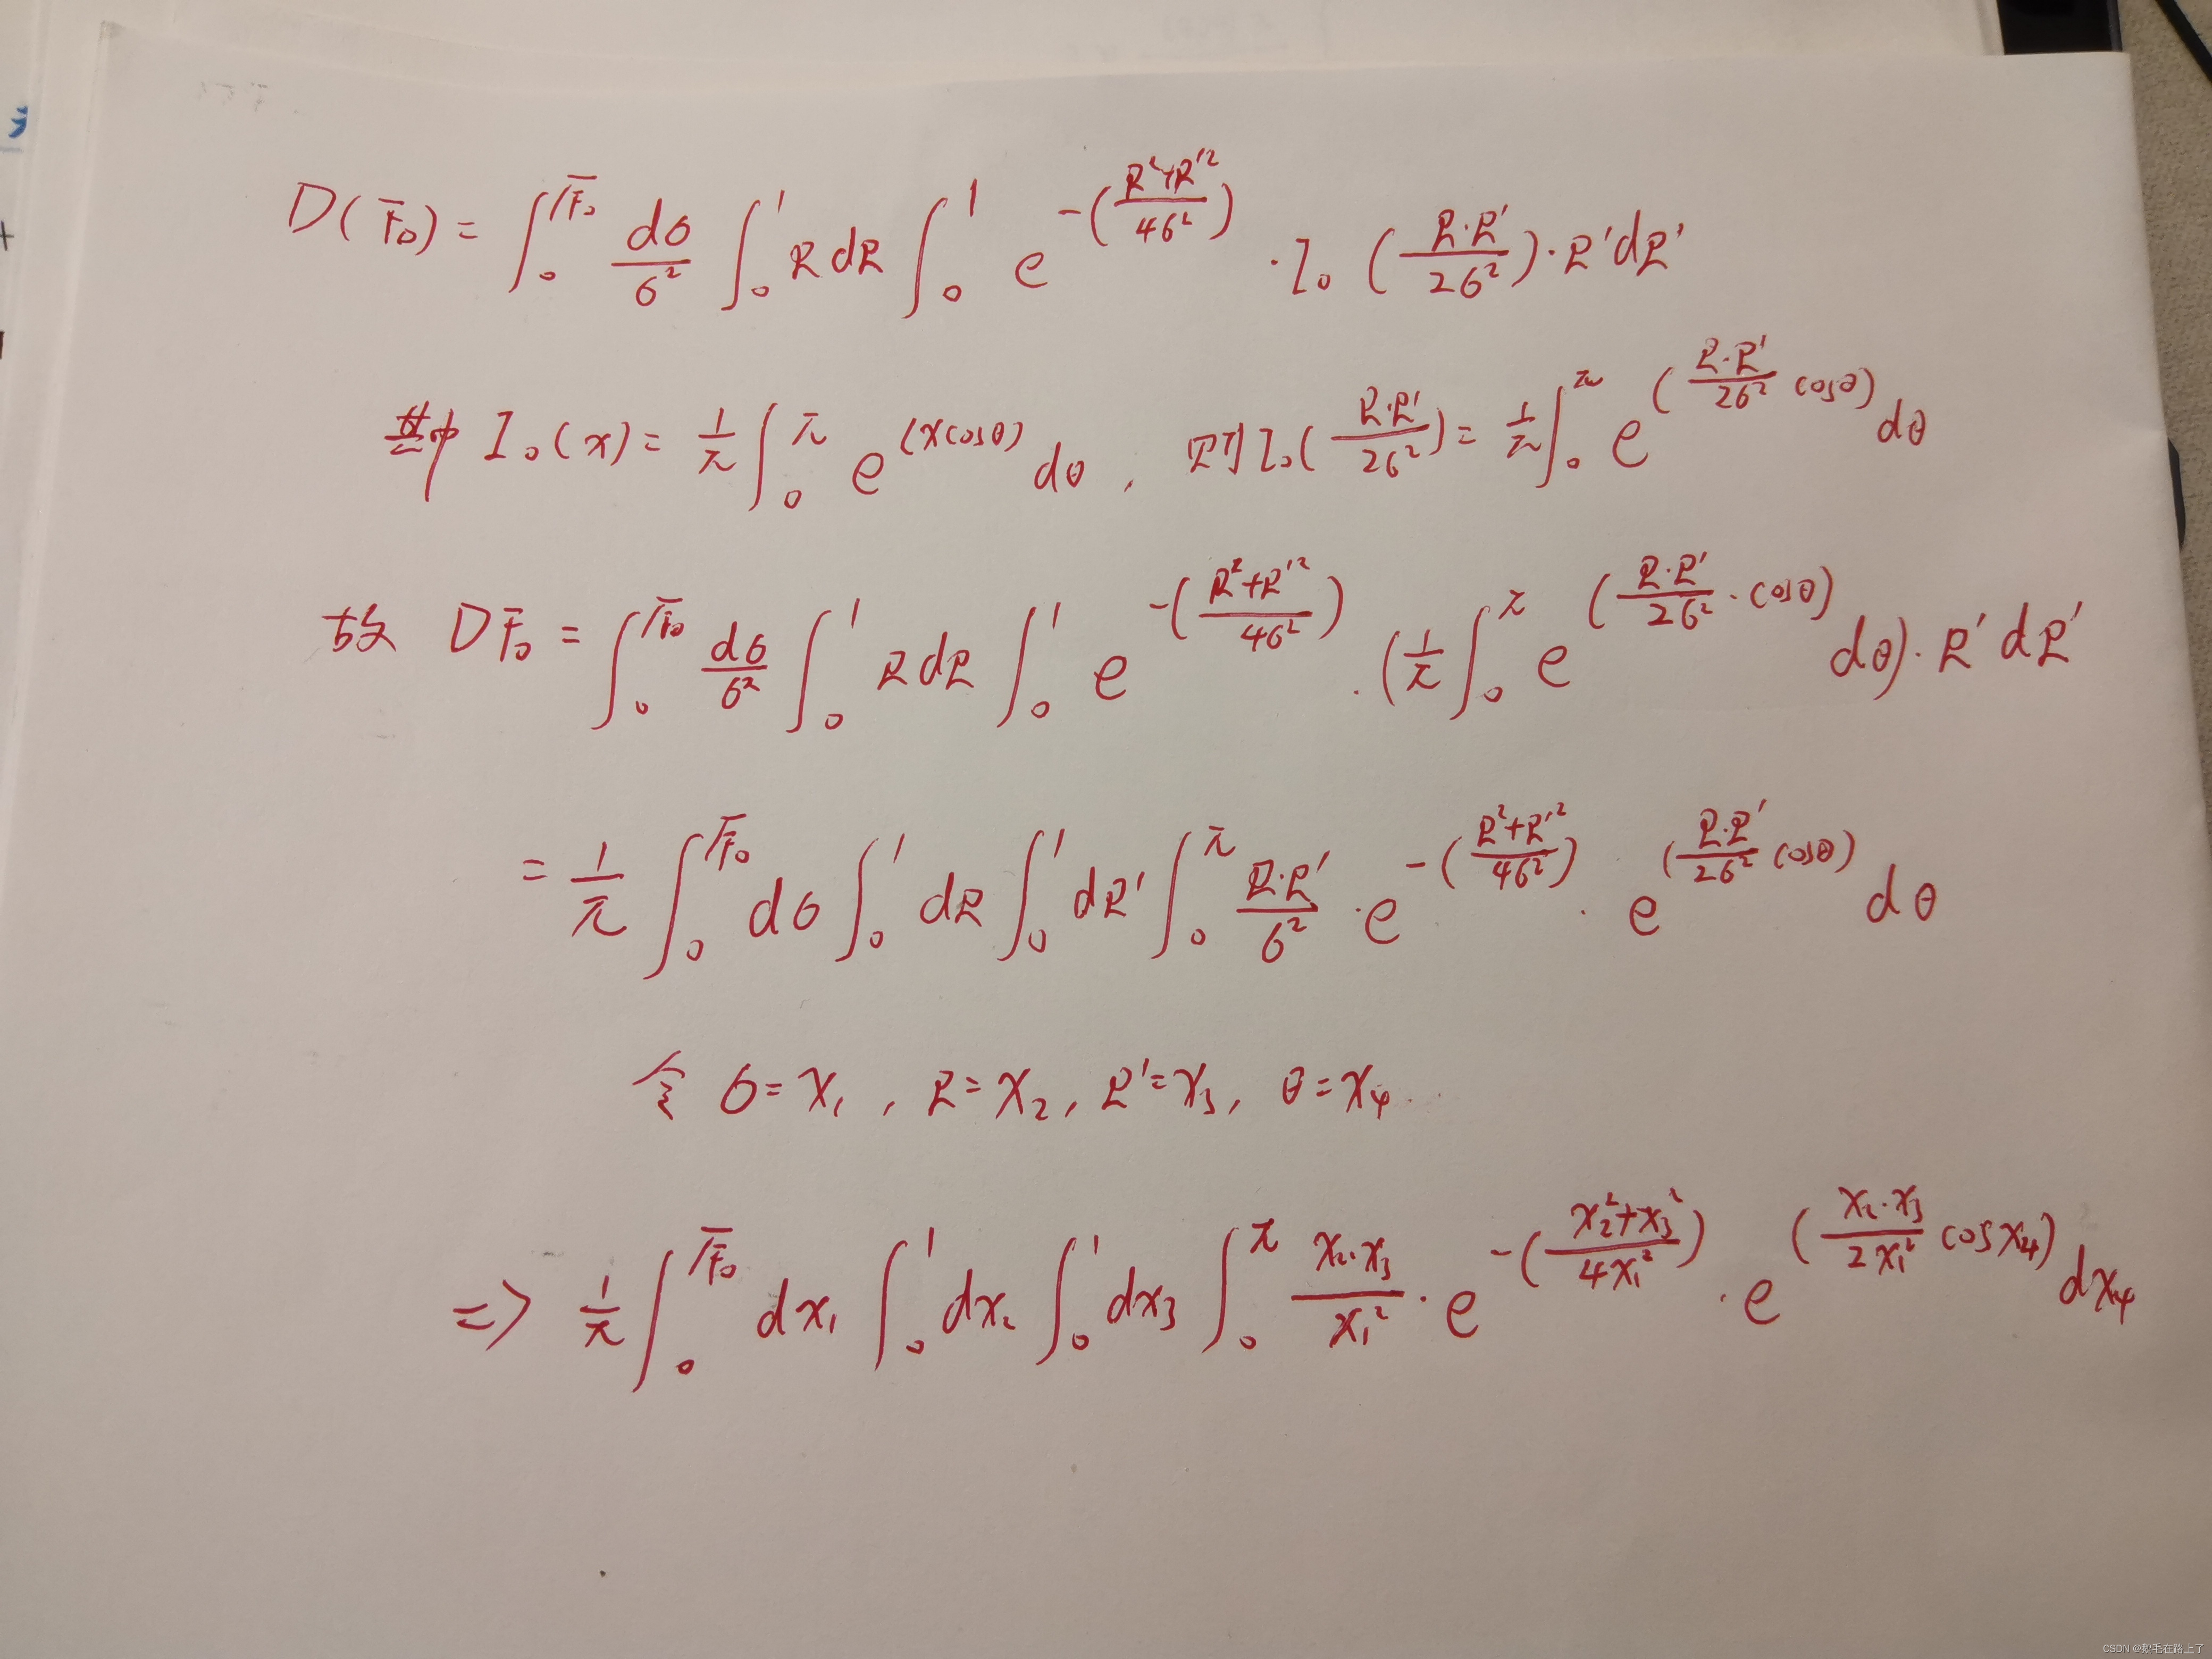 D(F₀) = ∫₀^{√F₀} dσ/σ² ∫₀^1 R dR ∫₀^1 e^{-((R²+R'²)/4σ²)} · I₀ (R·R'/2σ²) · R'dR'
其中 I₀(x) = 1/π ∫₀^π e^{(xcosθ)} dθ , 则 I₀(R·R'/2σ²) = 1/π ∫₀^π e^{(R·R'/2σ² cosθ)} dθ
故 DF₀ = ∫₀^{√F₀} dσ/σ² ∫₀^1 R dR ∫₀^1 e^{-((R²+R'²)/4σ²)} · (1/π ∫₀^π e^{(R·R'/2σ² · cosθ)} dθ) · R'dR'
= 1/π ∫₀^{√F₀} dσ ∫₀^1 dR ∫₀^1 dR' ∫₀^π R·R'/σ² · e^{-((R²+R'²)/4σ²)} · e^{(R·R'/2σ² cosθ)} dθ
令 σ = x₁ , R = x₂ , R' = x₃ , θ = x₄
=> 1/π ∫₀^{√F₀} dx₁ ∫₀^1 dx₂ ∫₀^1 dx₃ ∫₀^π x₂·x₃/x₁² · e^{-((x₂²+x₃²)/4x₁²)} · e^{(x₂·x₃/2x₁² cosx₄)} dx₄
CSDN @鹅毛在路上了